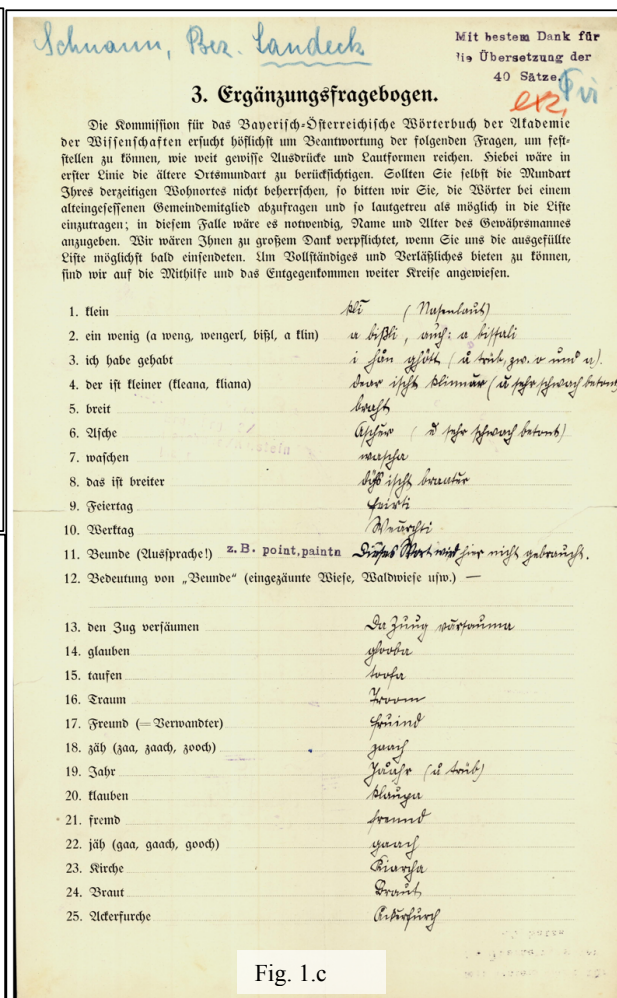 Schnann, Bez. Landeck
Mit bestem Dank für
die Übersetzung der
40 Sätze.
3. Ergänzungsfragebogen.
Die Kommission für das Bayerisch-Österreichische Wörterbuch der Akademie
der Wissenschaften ersucht höflichst um Beantwortung der folgenden Fragen, um fest-
stellen zu können, wie weit gewisse Ausdrücke und Lautformen reichen. Hiebei wäre in
erster Linie die ältere Ortsmundart zu berücksichtigen. Sollten Sie selbst die Mundart
Ihres derzeitigen Wohnortes nicht beherrschen, so bitten wir Sie, die Wörter bei einem
alteingesessenen Gemeindemitglied abzufragen und so lautgetreu als möglich in die Liste
einzutragen; in diesem Falle wäre es notwendig, Name und Alter des Gewährsmannes
anzugeben. Wir wären Ihnen zu großem Dank verpflichtet, wenn Sie uns die ausgefüllte
Liste möglichst bald einsendeten. Um Vollständiges und Verläßliches bieten zu können,
sind wir auf die Mithilfe und das Entgegenkommen weiter Kreise angewiesen.
1. klein klī (Nasenlaut)
2. ein wenig (a weng, wengerl, bißl, a klin) a bißli, auch: a bissali
3. ich habe gehabt i hån ghött (å trüb, zw. o und a).
4. der ist kleiner (kleana, kliana) dear ischt klinnar (a sehr schwach betont)
5. breit braht
6. Asche (ů sehr schwach betont)
7. waschen wascha
8. das ist breiter ischt
9. Feiertag feirti
10. Werktag Weărchti
11. Beunde (Aussprache!) z.B. point,paintn Dieses Wort wird hier nicht gebraucht.
12. Bedeutung von „Beunde“ (eingezäunte Wiese, Waldwiese usw.) —
13. den Zug versäumen Da Zuug varsauma
14. glauben glooba
15. taufen toofa
16. Traum Troom
17. Freund (= Verwandter) fruind
18. zäh (zaa, zaach, zooch) zaach
19. Jahr Jåahr (å trüb)
20. klauben klaupa
21. fremd fremd
22. jäh (gaa, gaach, gooch) gaach
23. Kirche Kiarcha
24. Braut Braut
25. Ackerfurche Ackerfurch
Fig. 1.c